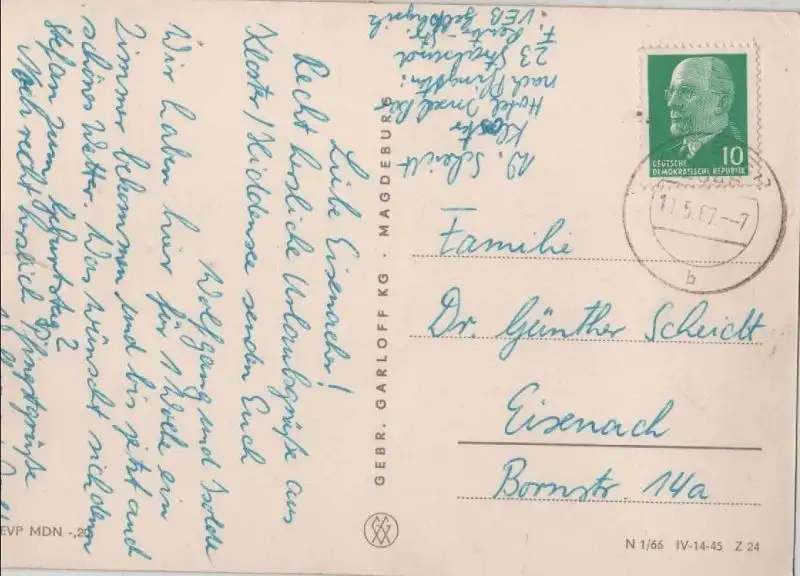 Liebe Eisenacher!
Recht herzliche Urlaubsgrüße aus
Kloster/Hiddensee senden Euch
Wolfgang und Isolde
Wir haben hier für 1 Woche ein
Zimmer bekommen und bis jetzt auch
schönes Wetter. Was wünscht sich denn
Stefan zum Geburtstag?
Noch recht herzlich Pfingstgrüße
W. Scheidt
Kloster
Hotel Insel
nach Pfingsten:
23 Stralsund
VEB
GEBR. GARLOFF KG · MAGDEBURG
10
DEUTSCHE
DEMOKRATISCHE REPUBLIK
11.5.67.--7
b
Familie
Dr. Günther Scheidt
Eisenach
Bornstr. 14a
EVP MDN -,20
N 1/66 IV-14-45 Z 24